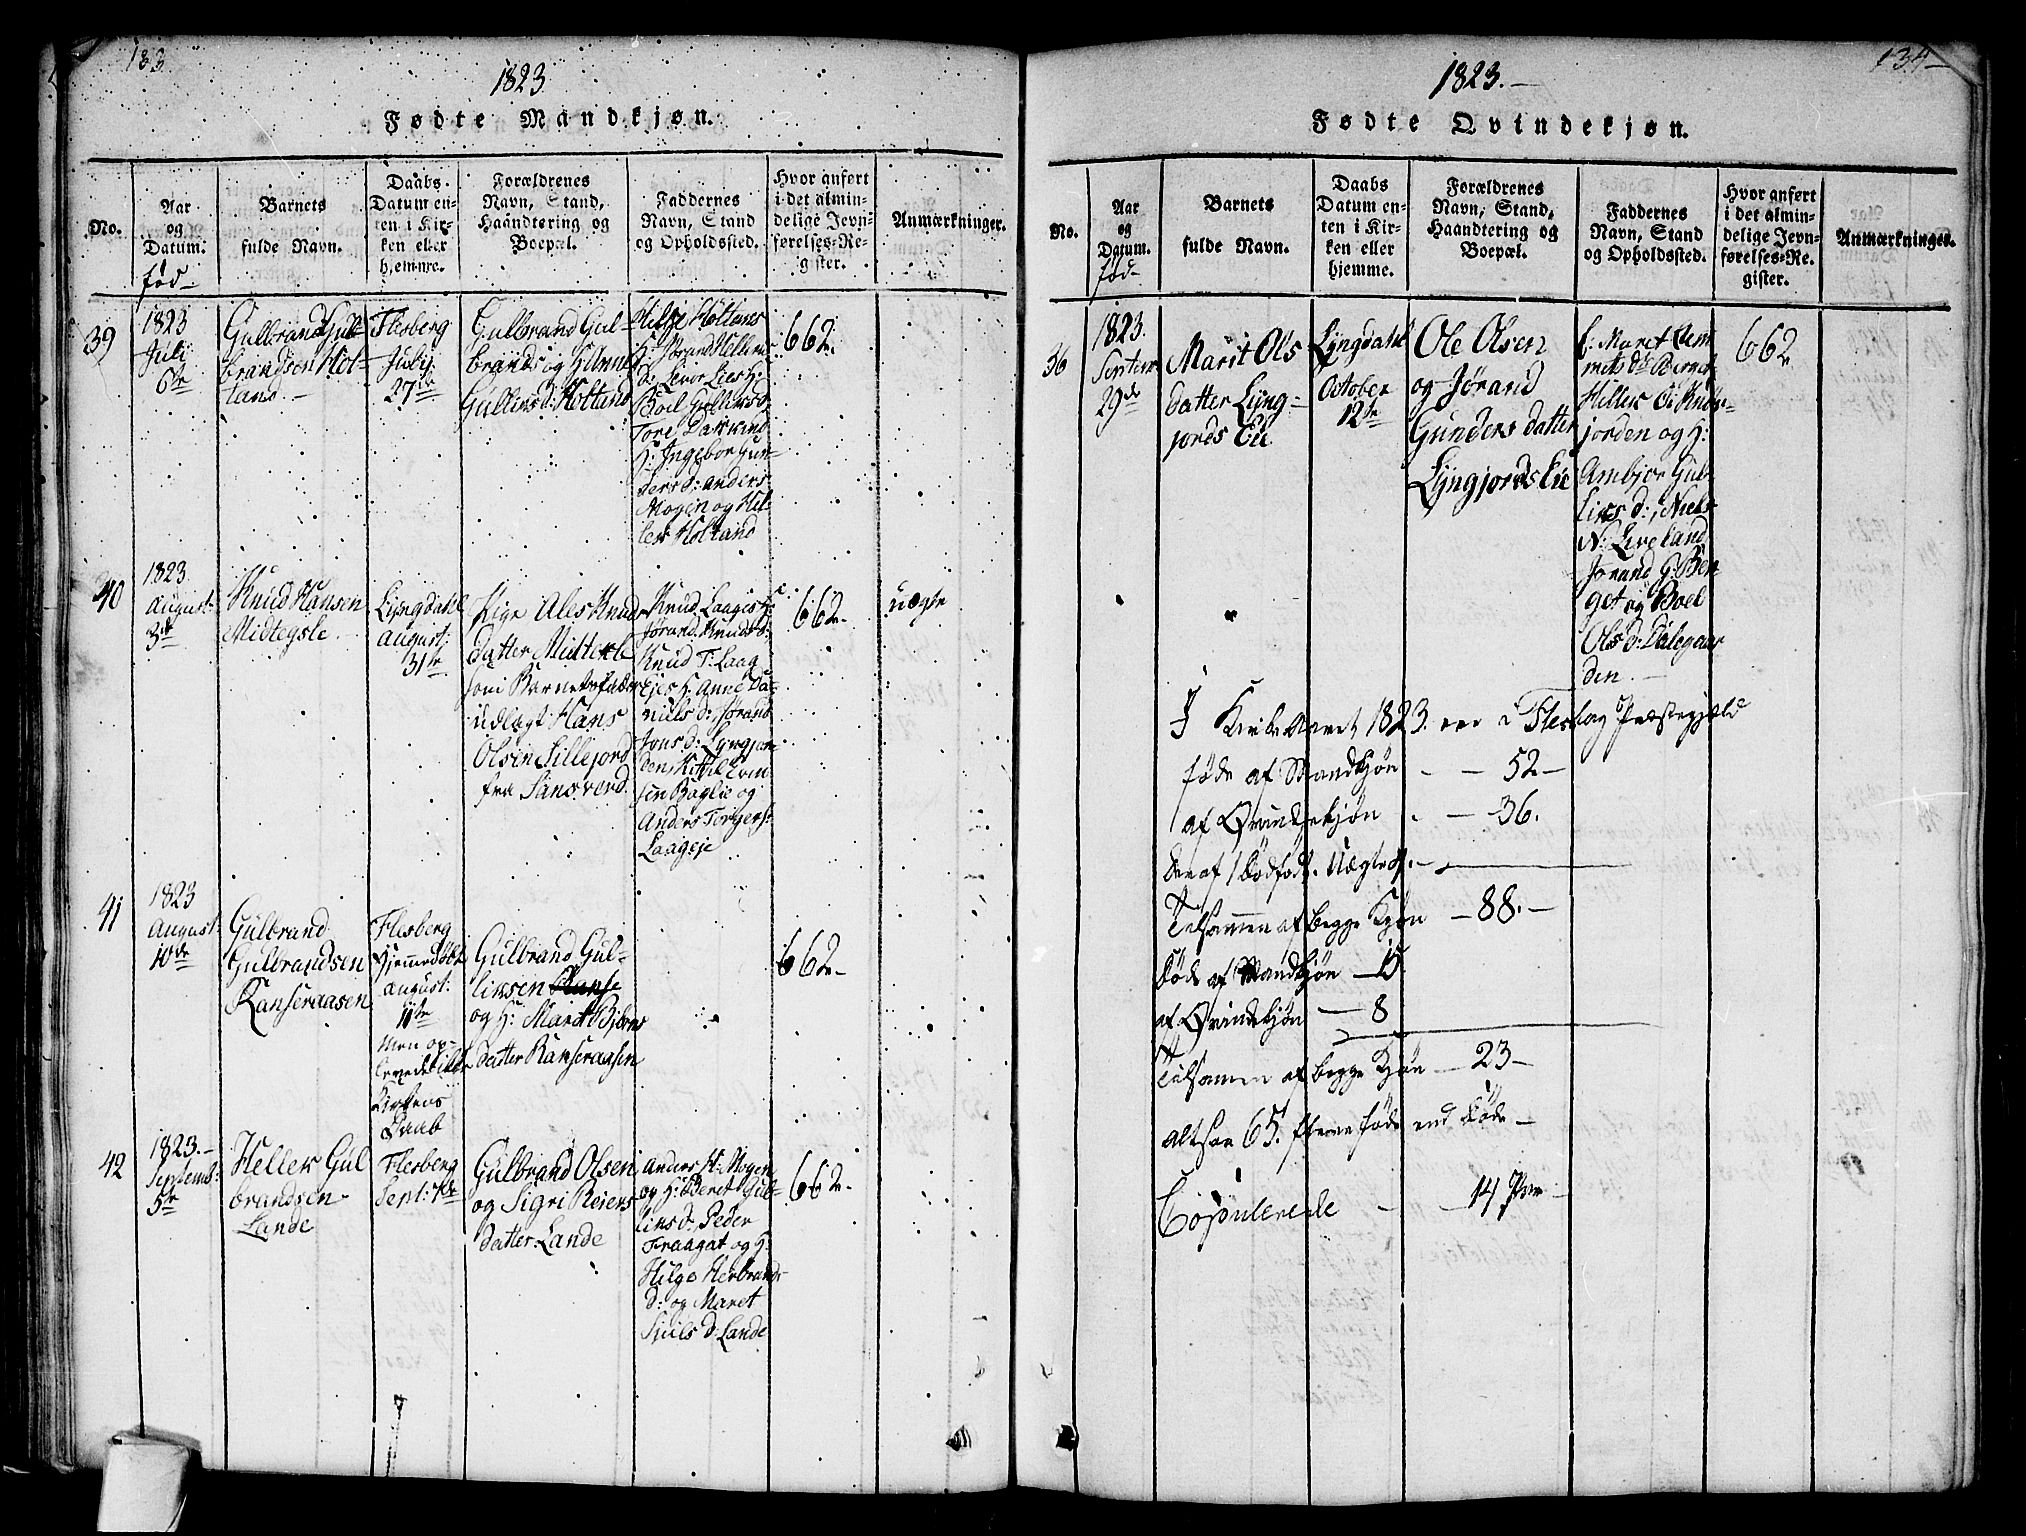 133
1823
Fødte Mandkjøn.
No.
Aar
og
Datum.
fød
Barnets
fulde Navn.
Daabs
Datum en-
ten i Kir-
ken eller
hjemme.
Forældrenes
Navn, Stand,
Haandtering og
Boepæl.
Faddernes
Navn, Stand
og Opholdssted.
Hvor anført
i det almin-
delige Jevn-
førelses-Re-
gister.
Anmærkninger.
39
1823
Juli
6te
Gulbrand Gul-
brandsen Hol-
tand
Flesberg
July
27de
Gulbrand Gul-
brands og H: Anne
Gullersd: Holtand
Hilge Holtans
H: Jørand Hellers
d: Levor Lies H:
Boel Gullersd:
Tore Dakkend
H: Ingebor Gun-
ders d: Anders
Mogen og Hel-
lek Holtand
662.
40
1823.
August:
3de
Knud Hansen
Midtegsle.
Lyngdahl
August:
31te
Pige Ales Knuds
datter Mittekle
som Barnefader
udlagt Hans
Olsen Lillejord
fra Sansverd.
Knud Laagis H:
Jørand Knudsd:
Knud T: Laag
Ejes H. Anne Da-
niels d: Jørand
Jons d: Lyngjor
den, Kittil Evin
sen Baglie og
Anders Torgers:
Laageje
662.
uægte
41
1823
August:
10de
Gulbrand
Gulbrandsen
Ranseraasen
Flesberg
Hjemmedøbt
August:
11te
Men op-
levede ikke
Kirkens
Daab
Gulbrand Gul-
liksen
og H: Marit Bjørns
datter Ranseraasen
662.
42
1823.
Septemb:
5te
Hellek Gul
brandsen
Lande
Flesberg
Sept: 7de
Gulbrand Olsen
og Sigri Reiers
datter Lande
Anders H: Mogen
og H: Beret Gul-
liks d: Peder
Traagat og H:
Hilge Herbrands
d: og Maret
Sjuls d: Lande
662.
134
1823.
Fødte Qvindekjøn.
No.
Aar
og
Datum.
fød
Barnets
fulde Navn.
Daabs
Datum en-
ten i Kir-
ken eller
hjemme.
Forældrenes
Navn, Stand,
Haandtering og
Boepæl.
Faddernes
Navn, Stand
og Opholdssted.
Hvor anført
i det almin-
delige Jevn-
førelses-Re-
gister.
Anmærkninger.
36
1823.
Septem
29de
Marit Ols
datter Lyng-
jords Eie
Lyngdahl
October
12te
Ole Olsen
og Jørand
Gunders datter
Lyngjords Eie
Maret Clem
mets dr Berget
Hellek
jorden og H:
Ambjor Gul-
liks d: Niels
N: Liveland
Jørand G: Ber
get og Boel
Ols d: Dalegaar
den.
I Kirke Aaret 1823. ere i Flesberg Præstegjæld
føde af Mandkjøn - - 52
af Qvindekjøn - - 36.
deraf 1 dødfødt. Uægte 9.
Tilsammen af begge Kjøn - 88.
døde af Mandkjøn - 15
af Qvindekjøn - 8
Tilsammen af begge Kjøn - 23
altsaa 65. flere føde end døde
Copulerede - - 14 Par